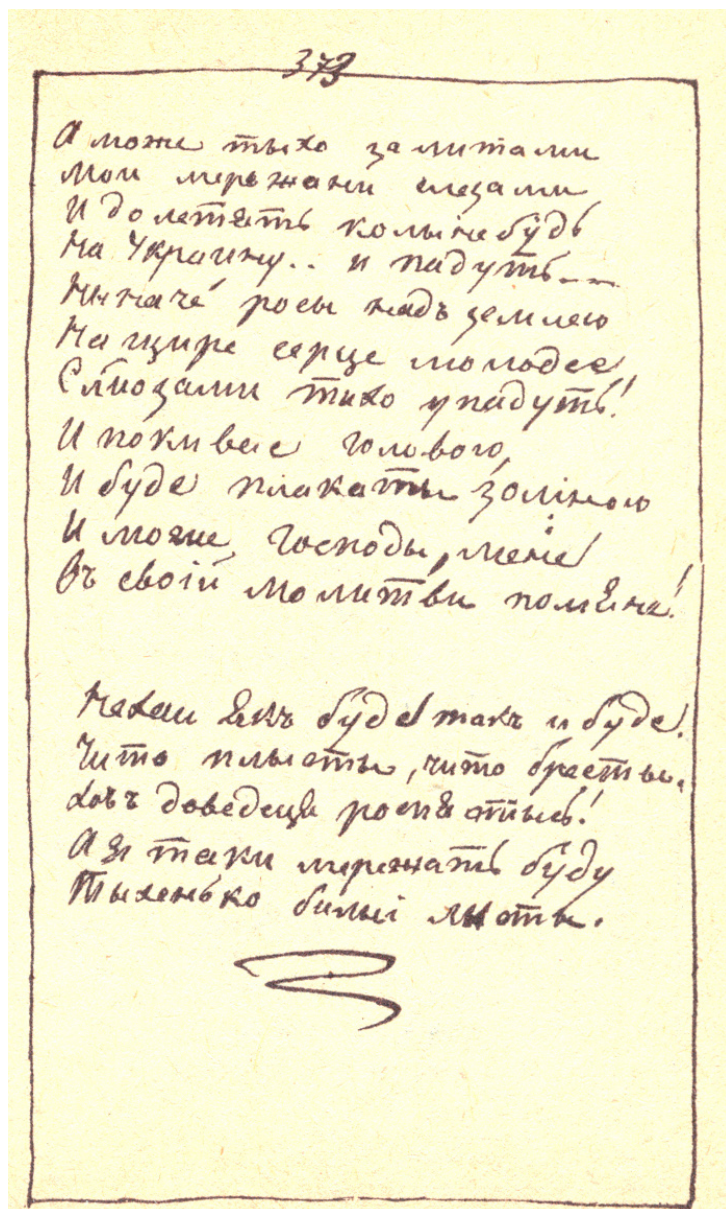 373
А може тыхо за литами
Мои мережани слезами
И долетять колынебудь
На Украину.. и падуть---
Ныначе росы надъ землею
На щире серце молодее,
Слiозами тихо упадуть!
И покивае головою,
И буде плакаты зо мною
И може, Господы, мене
Въ своiй молитви помяне!
Нехай якъ буде! такъ и буде.
Чи то плысты, чи то бресты.
Хочъ доведеця роспястысь!
А я таки мережать буду
Тыхенько билыi лысты.